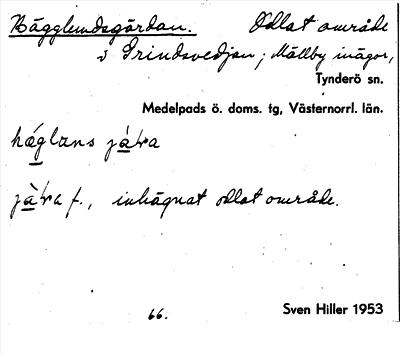 Bägglundsgärdan. Odlat område
i Grindsvedjan; Mällby inägor,
Tynderö sn.
Medelpads ö. doms. tg, Västernorrl. län.
jàra f., inhägnat odlat område.
66.
Sven Hiller 1953